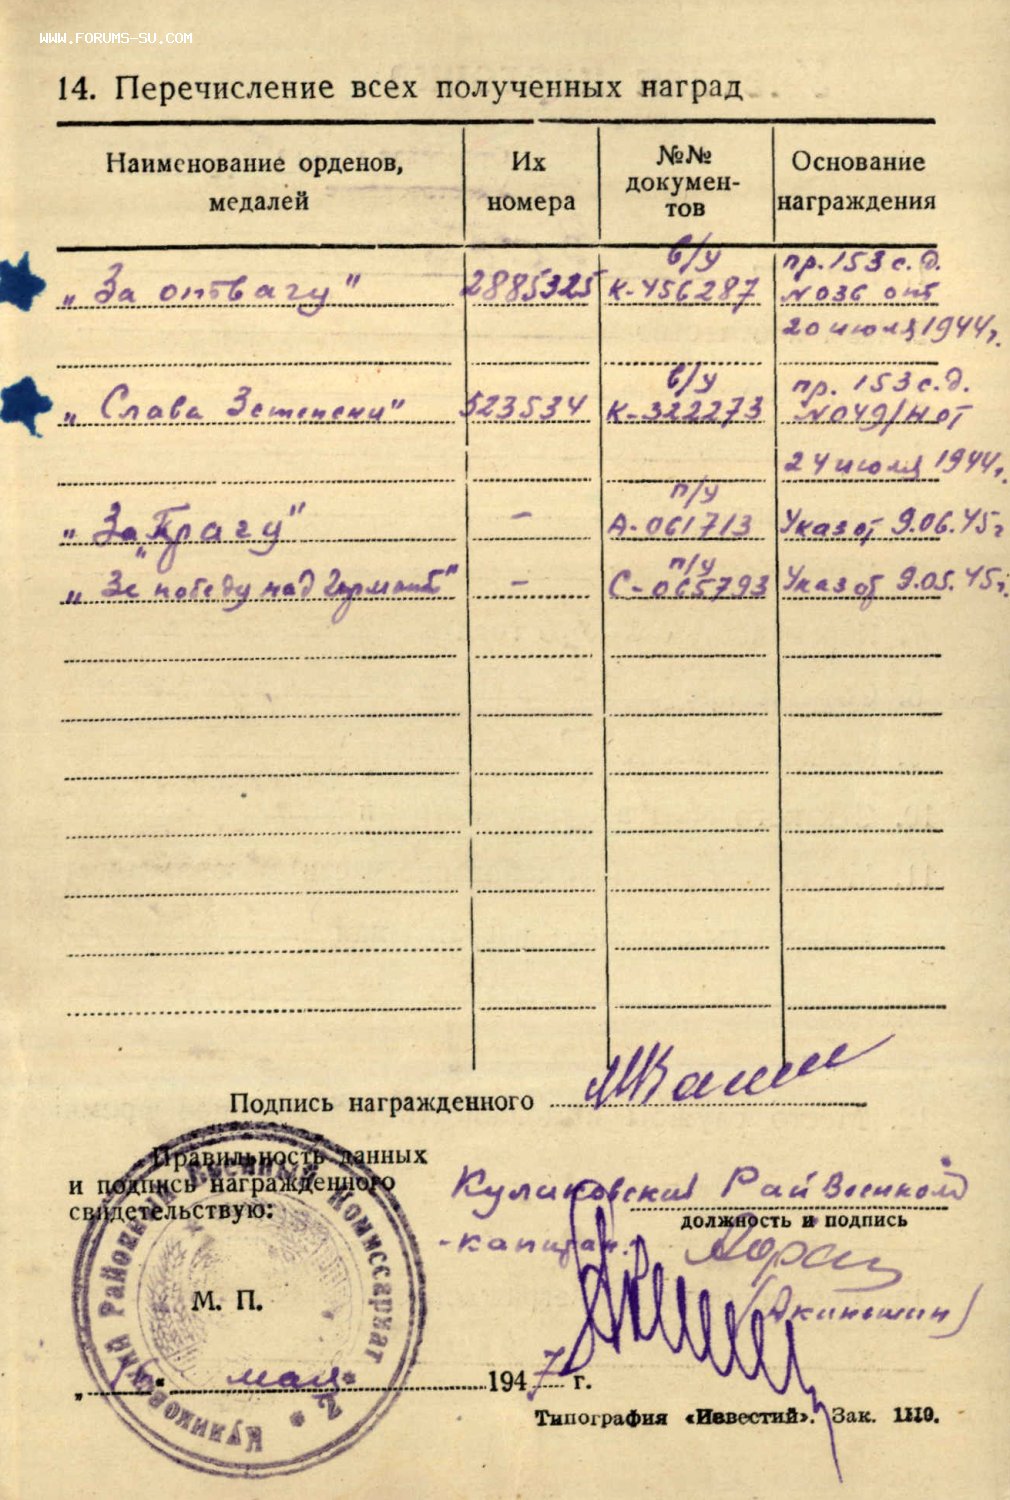 WWW.FORUMS-SU.COM
14. Перечисление всех полученных наград
Наименование орденов, медалей
Их номера
№№ докумен-тов
Основание награждения
„За отвагу" 2885325 в/у К-456287 пр. 153 с.д. №036 от 20 июля 1944г.
„Слава 3 степени" 523534 в/у К-322273 пр. 153 с.д. №049/н от 24 июля 1944г.
„За „Прагу" - п/у А-061713 Указ от 9.06.45г
„За победу над Германией" - п/у С-065793 Указ от 9.05.45г.
Подпись награжденного
Правильность данных
и подпись награжденного
свидетельствую:
Куликовский Райвоенком
должность и подпись
-капитан.
(Акиньшин)
М. П.
Куликовский Районный Военный Комиссариат
мая 1947 г.
Типография «Известий». Зак. 1110.